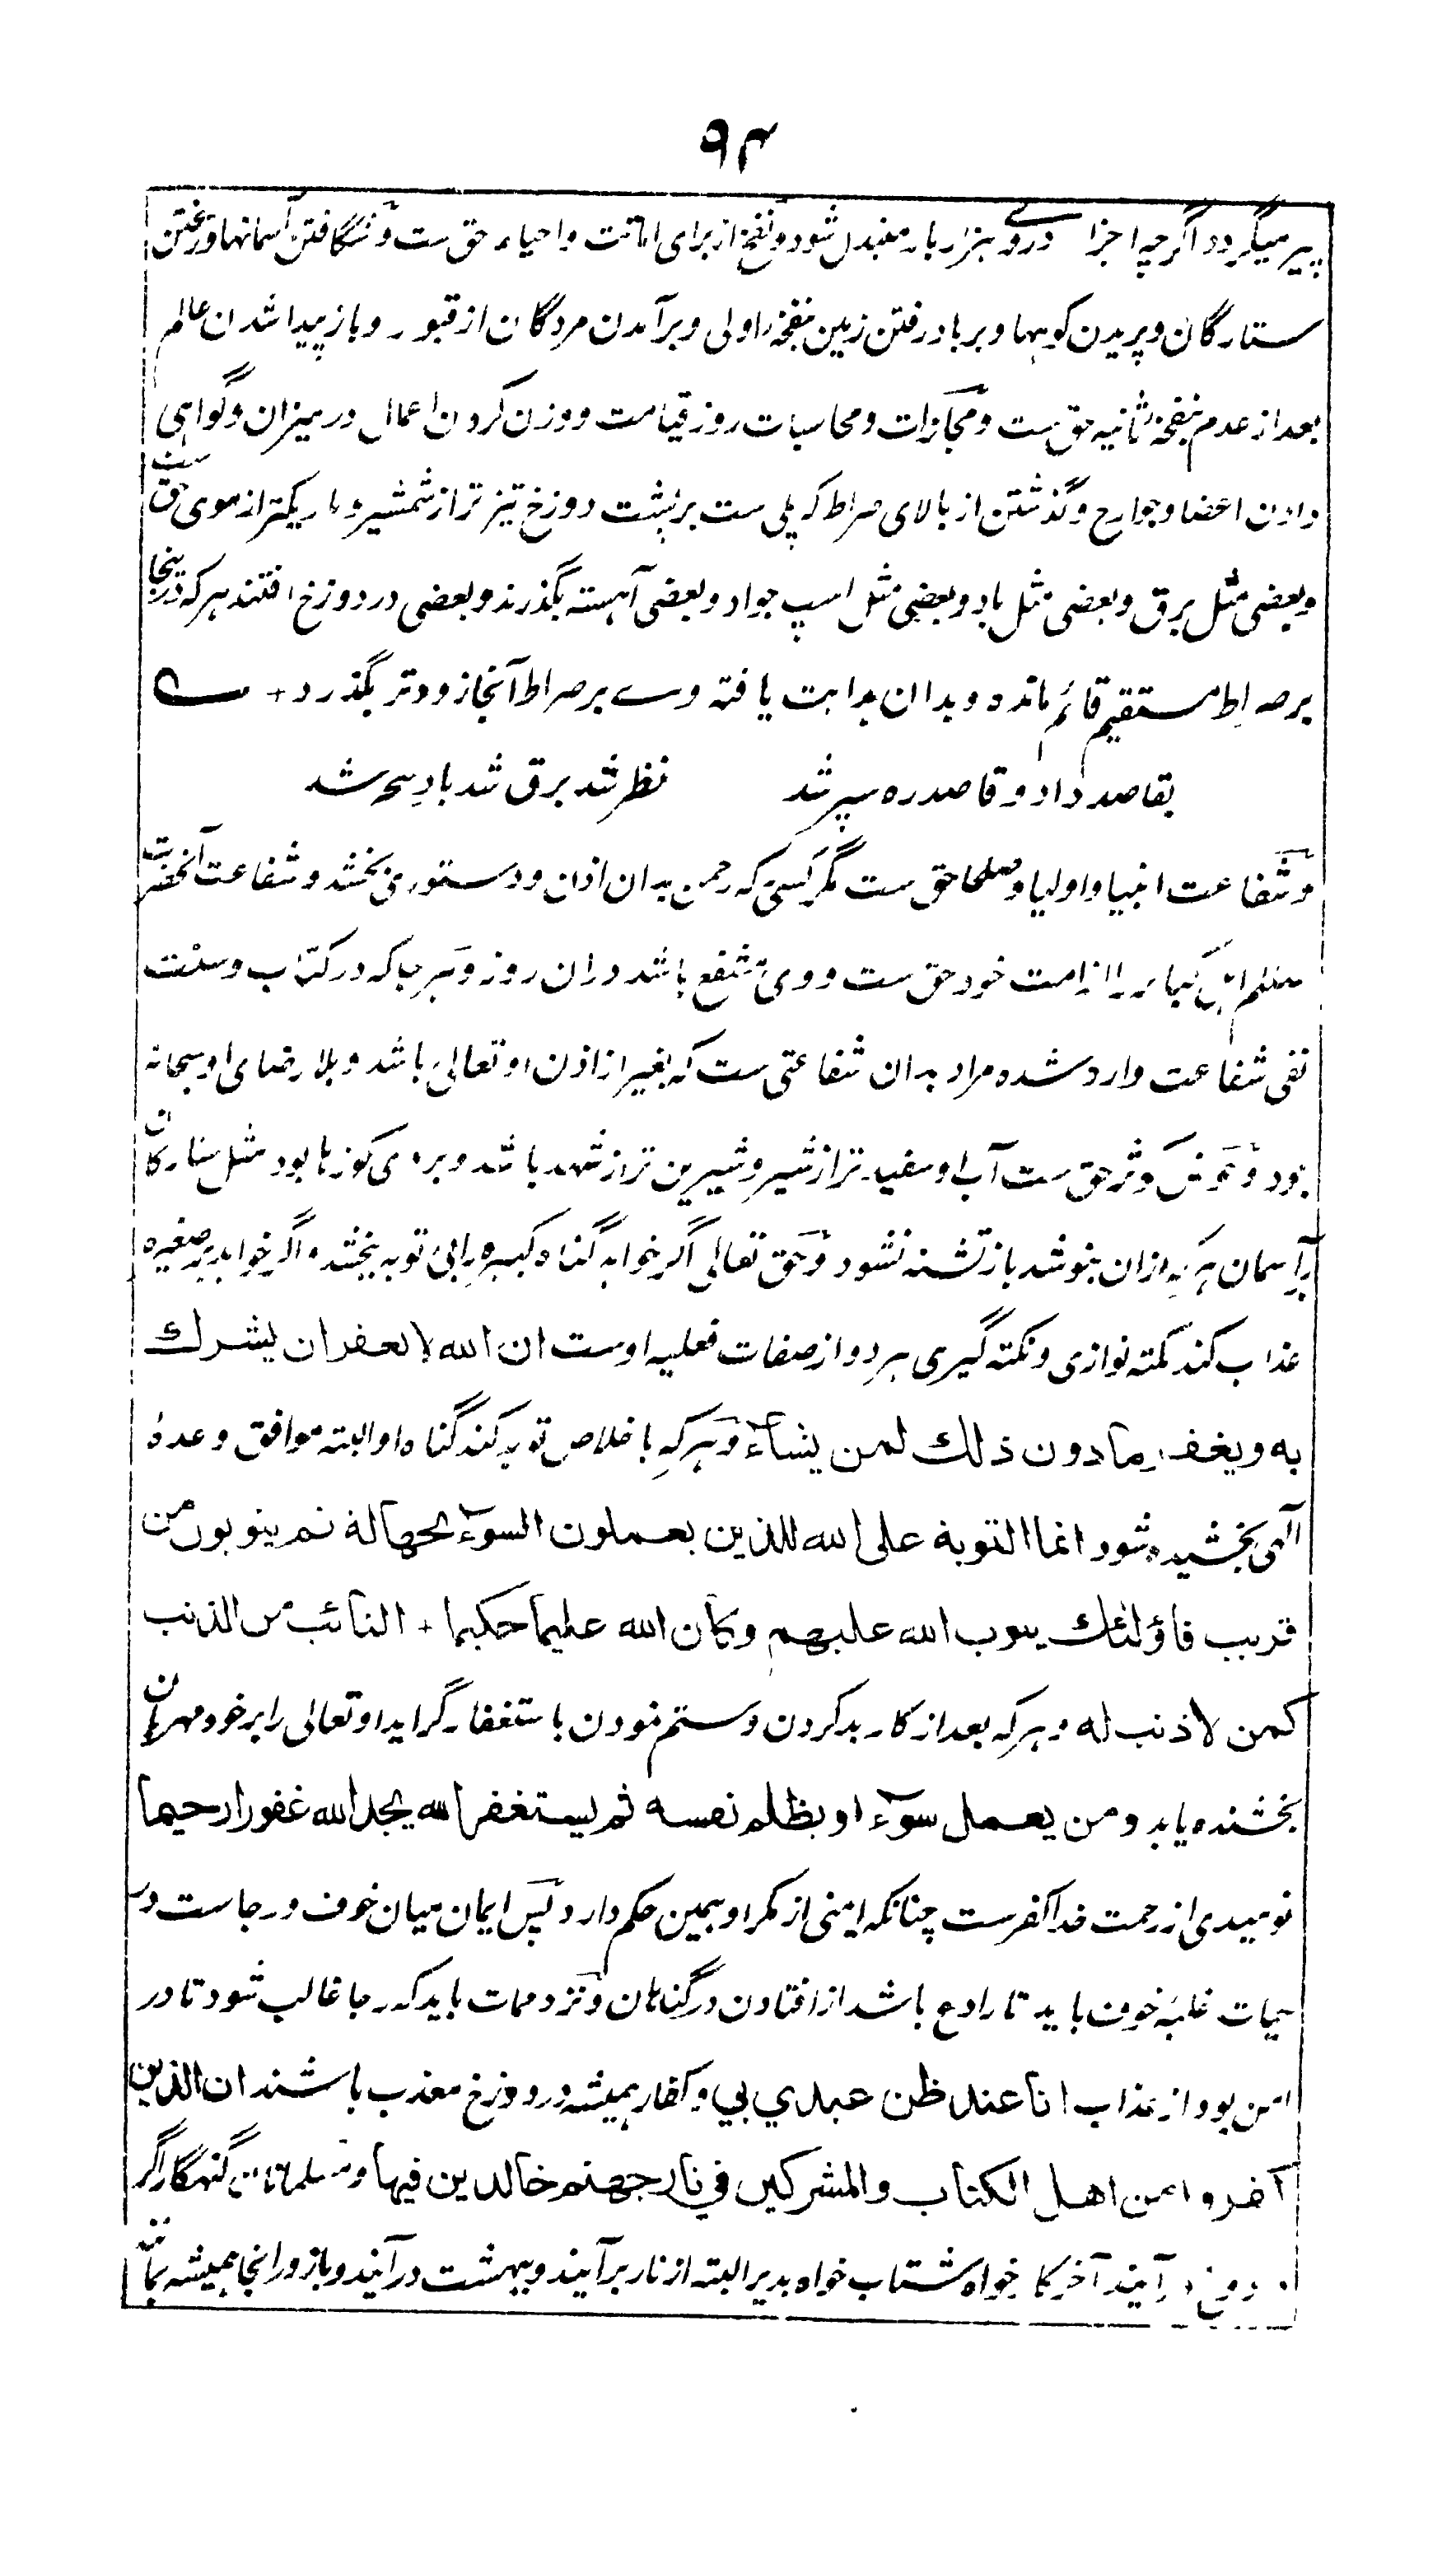 ۹۴
پیر میگردد اگرچه اجزا درو هزار بار متبدل شود و نفخ از برای اماتت و احیاء حق ست و شگافتن آسمانها و ریختن
ستارگان و پریدن کوهها و بر باد رفتن زمین بنفخهٔ اولی و برآمدن مردگان از قبور و باز پیدا شدن عالم
بعد از عدم بنفخهٔ ثانیه حق ست و مجازات و محاسبات روز قیامت و وزن کردن اعمال در میزان و گواهی
دادن اعضا و جوارح و گذشتن از بالای صراط که پلی ست بر پشت دوزخ تیز تر از شمشیر و باریکتر از موی حق ست
و بعضی مثل برق و بعضی مثل باد و بعضی مثل اسپ جواد و بعضی آهسته بگذرند و بعضی در دوزخ افتند هر که درینجا
بر صراط مستقیم قائم مانده و بدان هدایت یافته وے بر صراط آنجا زودتر بگذرد +
بقاصد داد و قاصد ره سپر شد نظر شد برق شد باد سحر شد
و شفاعت انبیا و اولیا و صلحا حق ست مگر کسی که رحمن بدان اذن و دستوری بخشد و شفاعت آنحضرت
صلعم اهل کبائر را از امت خود حق ست و وی مشفع باشد دران روز و هر جا که در کتاب و سنت
نفی شفاعت وارد شده مراد بدان شفاعتی ست که بغیر از اذن او تعالی باشد و بلا رضای او سبحانه
بود و حوض کوثر حق ست آب او سفید تر از شیر و شیرین تر از شهد باشد و بروی کوزها بود مثل ستارگان
بر آسمان هر که ازان بنوشد باز تشنه نشود و حق تعالی اگر خواهد گناه کبیره را بی توبه بخشد و اگر خواهد بر صغیره
عذاب کند نکته نوازی و نکته گیری هر دو از صفات فعلیه اوست ان الله لا یغفر ان یشرك
به ویغفر ما دون ذلك لمن یشآء و هر که باخلاص توبه کند گناه او البته موافق وعدهٔ
الهی بخشیده شود انما التوبة على الله للذین یعملون السوء بجهالة ثم یتوبون من
قریب فاولئك یتوب الله علیهم وكان الله علیما حكیما + التائب من الذنب
كمن لا ذنب له و هر که بعد از کار بد کردن و ستم نمودن باستغفار گراید او تعالی را بر خود مهربان
بخشنده یابد ومن یعمل سوء او یظلم نفسه ثم یستغفر الله یجد الله غفورا رحیما
نومیدی از رحمت خدا کفرست چنانکه ایمنی از مکر او همین حکم دارد پس ایمان میان خوف و رجاست در
حیات غلبهٔ خوف باید تا رادع باشد از افتادن در گناهان و نزد ممات باید که رجا غالب شود تا در
امن بود از عذاب انا عند ظن عبدي بي و کفار همیشه در دوزخ معذب باشند ان الذین
كفروا من اهل الكتاب والمشركین في نار جهنم خالدین فیها و مسلمانان گنهگار اگر
در دوزخ در آیند آخر کار خواه شتاب خواه بدیر البته از نار برآیند و ببهشت درآیند و باز در انجا همیشه بمانند